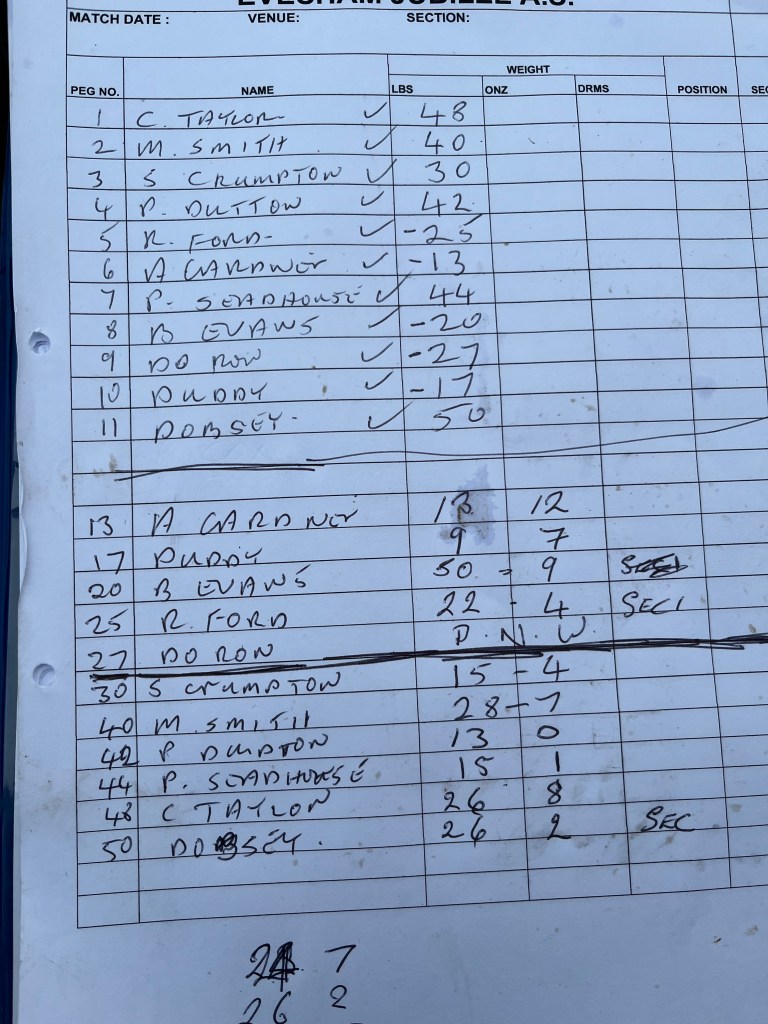 EVESHAM JUBILEE A.S.
MATCH DATE : VENUE: SECTION:
WEIGHT
PEG NO. NAME LBS ONZ DRMS POSITION SEC
1 C. TAYLOR ✓ 48
2 M. SMITH ✓ 40
3 S CRUMPTON ✓ 30
4 P. DUTTON ✓ 42
5 R. FORD- ✓ -25
6 A GARDNER ✓ -13
7 P- STADHOUSE ✓ 44
8 B EVANS ✓ -20
9 DO RON ✓ -27
10 DUDDY ✓ -17
11 DORSEY- ✓ 50
13 A GARDNER 13 12
17 DUDDY 9 7
20 B EVANS 50 = 9
25 R. FORD 22 - 4 SEC1
27 DO RON D.N.W.
30 S CRUMPTON 15 - 4
40 M. SMITH 28-7
42 P 13 0
44 P. STADHOUSE 15 1
48 C TAYLOR 26 8
50 DORSEY. 26 2 SEC
7
26 2